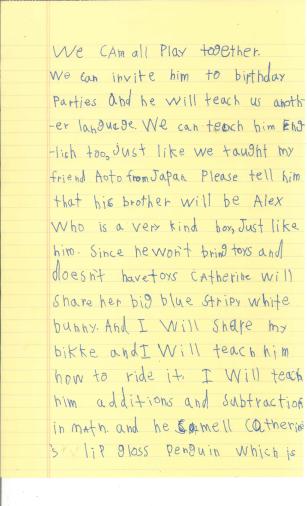 We CAn all Play together.
We can invite him to birthday
Parties and he will teach us anoth-
-er language. We can teach him Eng
-lish too, just like we taught my
friend Aoto from Japan. Please tell him
that his brother will be Alex
Who is a very kind boy, Just like
him. Since he won't bring toys and
doesn't have toys CAtherine will
share her big blue stripy white
bunny. And I Will share my
bikke and I Will teach him
how to ride it. I Will teach
him additions and subtraction
in math. and he smell CAtherine
's lip gloss Penguin which is